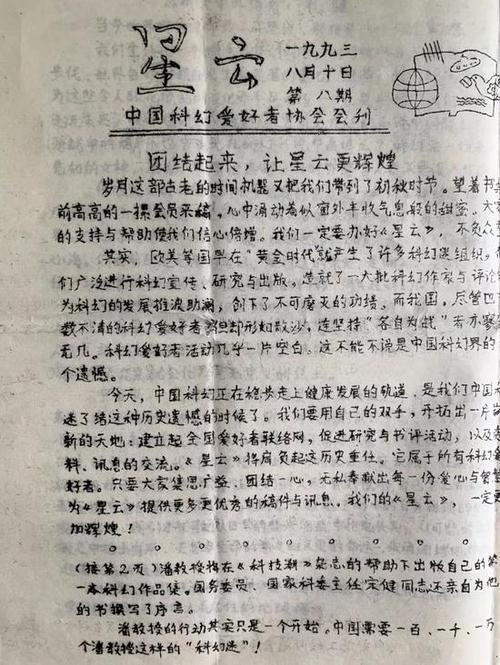 星云
一九九三
八月十日
第八期
中国科幻爱好者协会会刊
团结起来,让星云更辉煌
岁月这部古老的时间机器又把我们带到了初秋时节。望着书
前高高的一摞会员来稿,心中涌动着似窗外丰收气息般的甜蜜。大
的支持与帮助使我们信心倍增。我们一定要办好《星云》,不负众
其实,欧美等国早在“黄金时代”就产生了许多科幻迷组织,
们广泛进行科幻宣传、研究与出版。造就了一大批科幻作家与评论
为科幻的发展推波助澜,创下了不可磨灭的功绩。而我国,尽管
数不清的科幻爱好者,但却形如散沙,连坚持“各自为战”者亦寥
无几。科幻爱好者活动几乎一片空白。这不能不说是中国科幻界的
个遗憾。
今天,中国科幻正在稳步走上健康发展的轨道,是我们中国
迷了结这种历史遗憾的时候了。我们要用自己的双手,开拓出一片
新的天地:建立起全国爱好者联络网,促进研究与书评活动,以及
料、讯息的交流。《星云》将肩负起这历史重任。它属于所有科幻
好者。只要大家集思广益、团结一心,无私奉献出每一份爱心与
为《星云》提供更多更优秀的稿件与讯息。我们的《星云》,一定
加辉煌!
(接第2页)潘教授将在《科技潮》杂志的帮助下出版自己的第
一本科幻作品集。国务委员、国家科委主任宋健同志还亲自为他
的书撰写了序言。
潘教授的行动其实只是一个开始。中国需要一百、一千、一万
个潘教授这样的“科幻迷”!